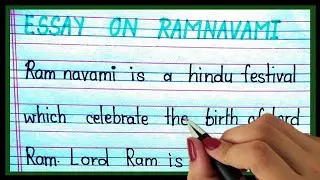 ESSAY ON RAMNAVAMI
Ram navami is a hindu festival
which celebrate the birth of lord
Ram. Lord Ram is